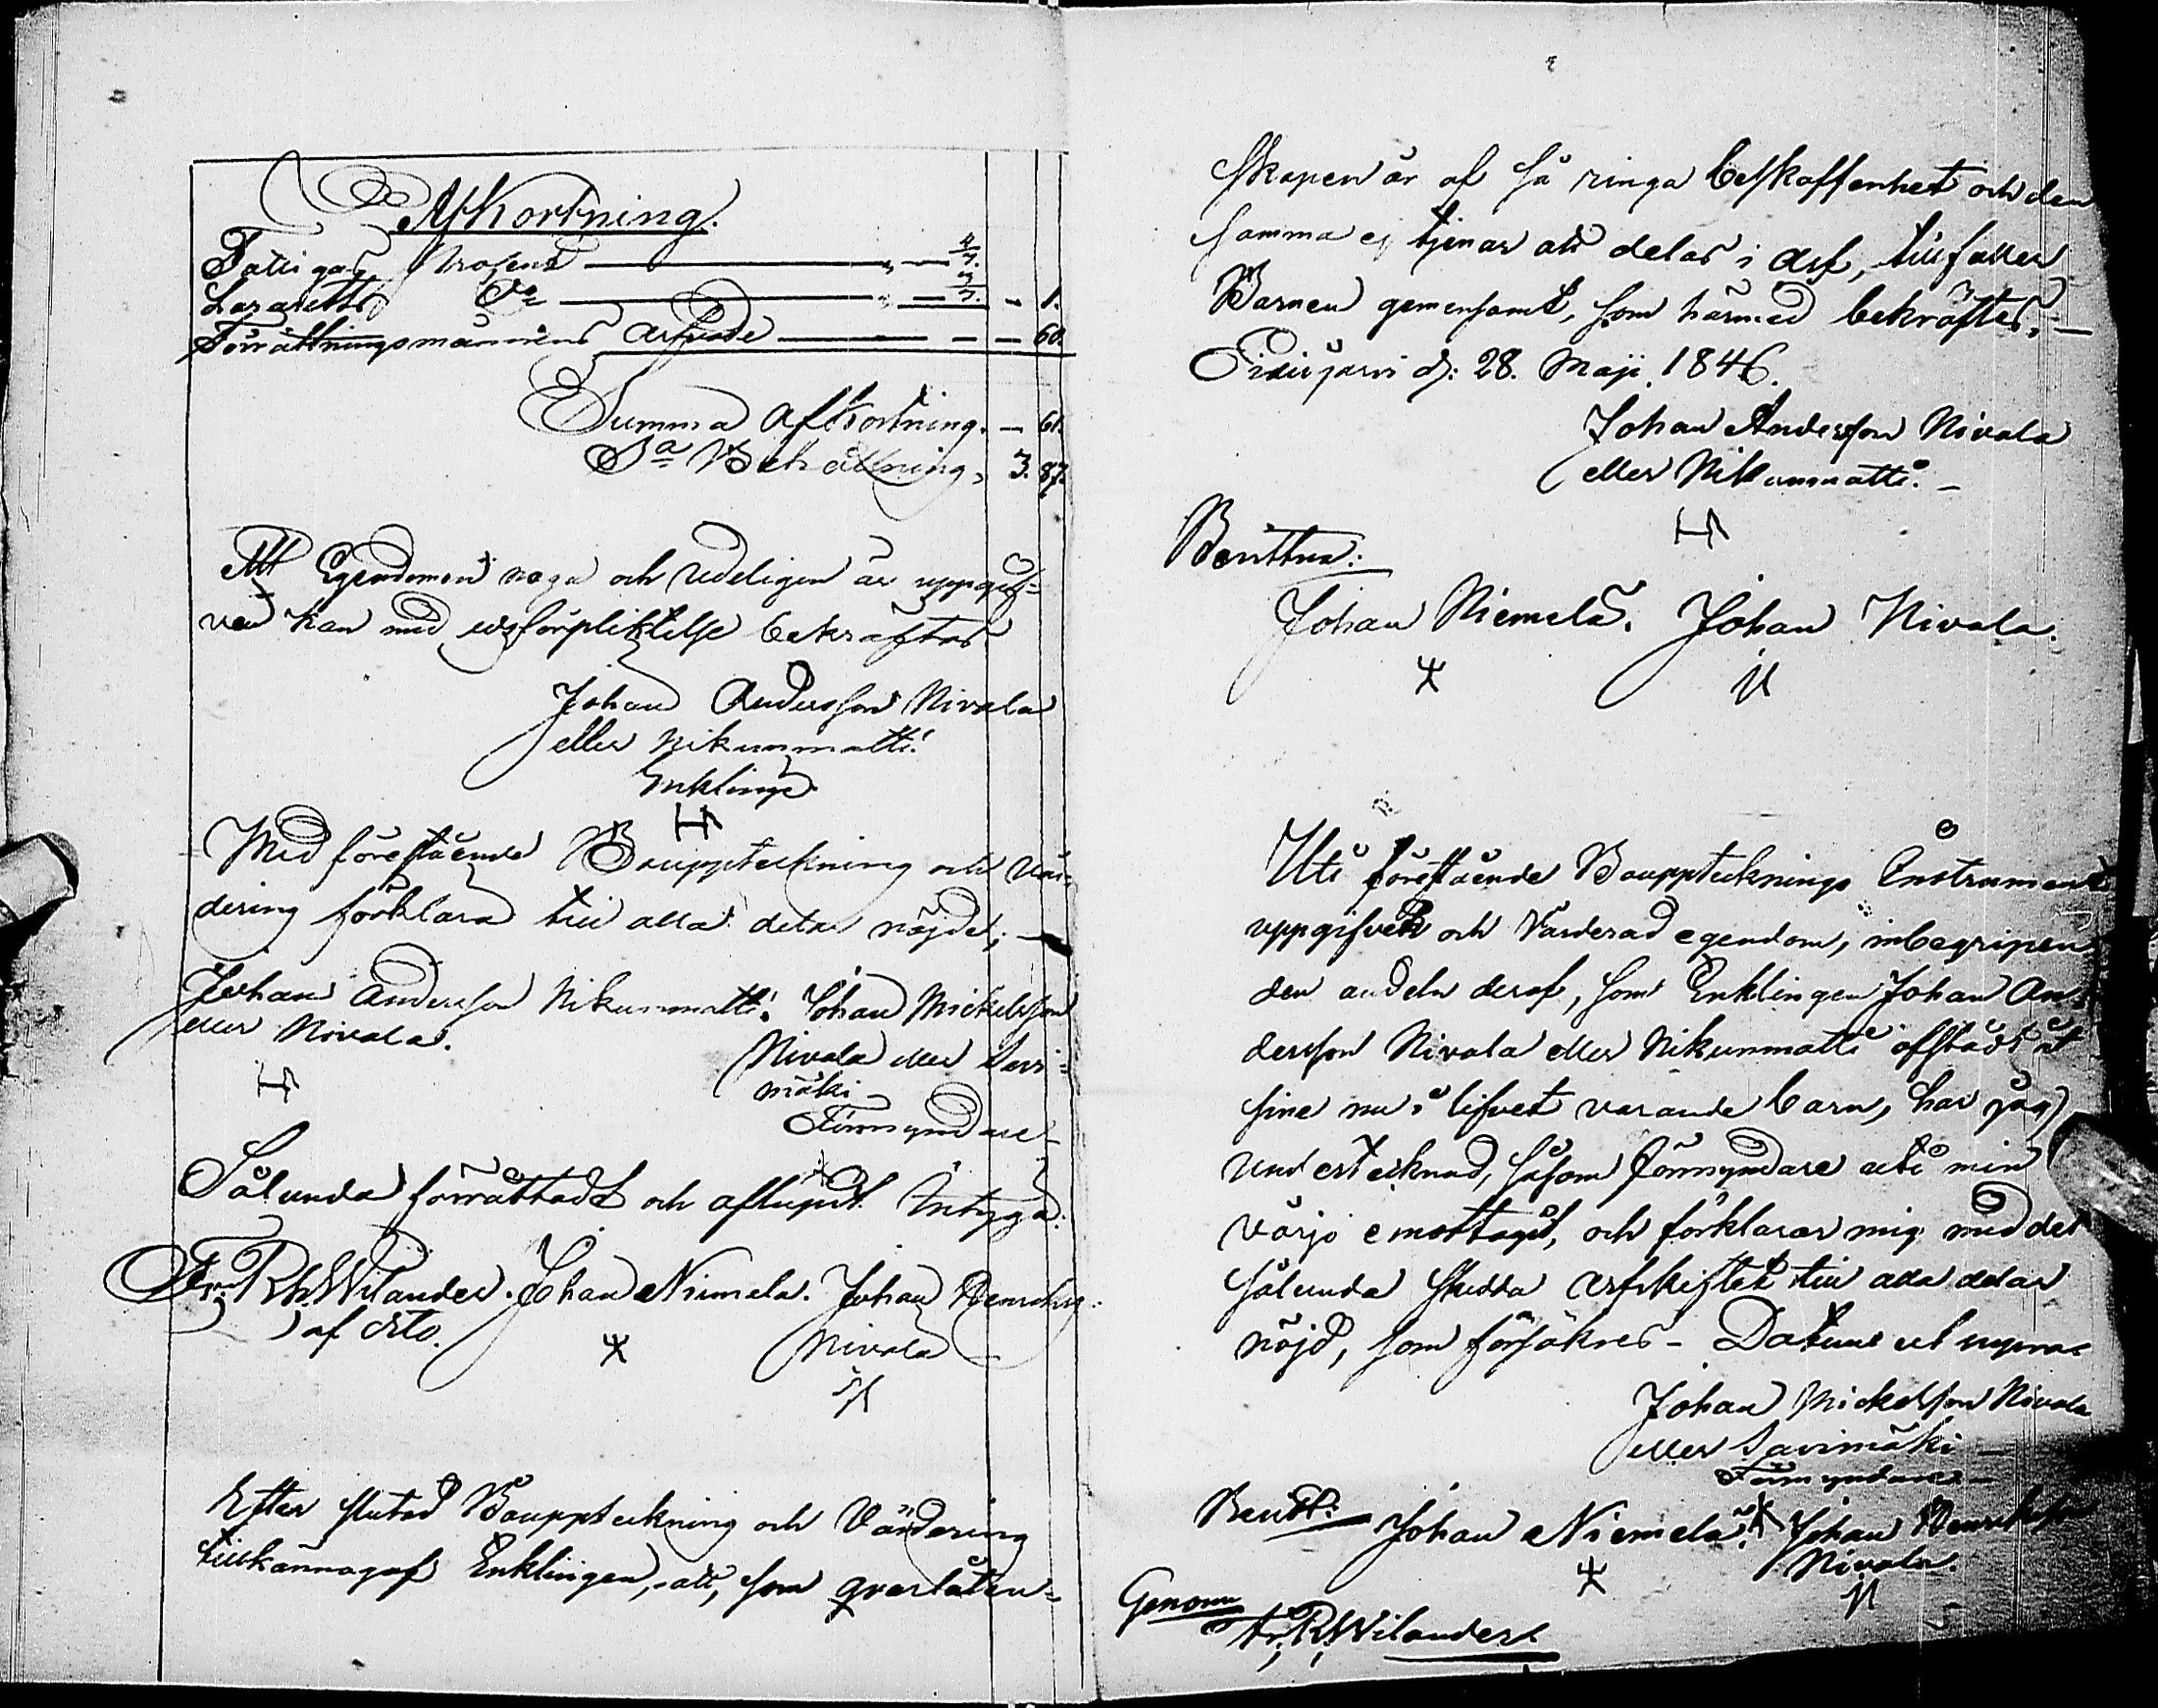 Afkortning.
Fattigas Prosent — " — 4/7.
Lazaretts Do — " — 3/7. - 1.
Förrättningsmännens Arfvode — — 60.
Summa Afkortning. — 61.
Sa Behållning, 3. 87.
Att Egendomen noga och redeligen är uppgif-
ven kan med edsförpliktelse bekräftas
Johan Andersson Nivala
eller Nikunmatti
Enkling
Med förestående Bouppteckning och Vär-
dering förklara till alla delar nöjde; —
Johan Andersson Nikunmatti. Johan Mickelsson
eller Nivala.
Nivala eller Savi-
mäki
Förmyndare
Sålunda förrättadt och aflupit Intyga:
Fr: Rh: Wilander. Johan Niemelä. Johan Henricss:
af Sto.
Nivala —
Efter slutad Bouppteckning och Värdering
tillkännagaf Enklingen, att, som qvarlåten-
skapen är af så ringa beskaffenhet och den
samma ej tjenar att delas i Arf, tillfaller
Barnen gemensamt, som härmed bekräftes, —
Pidisjärvi d: 28. Maji. 1846.
Johan Andersson Nivala
eller Nikunmatti. —
Bevittna:
Johan Niemelä. Johan Nivala.
Uti förestående Bouppteknings Instrument
uppgifven och Värderad egendom, inbegripen
den andeln deraf, som Enklingen Johan An-
dersson Nivala eller Nikunmatti afstådt åt
sine nu i lifvet varande barn, har jag
undertecknad, såsom förmyndare uti min
värjo emottagit, och förklarar mig med det
sålunda skedda Arfskiftet till alla delar
nöjd, som försäkres – Datum ut supra
Johan Mickelsson Nivala
eller Savimäki —
Förmyndare —
Bevitt: Johan Niemelä. Johan Henricksson
Nivala.
Genom
Fr: Rh: Wilander.